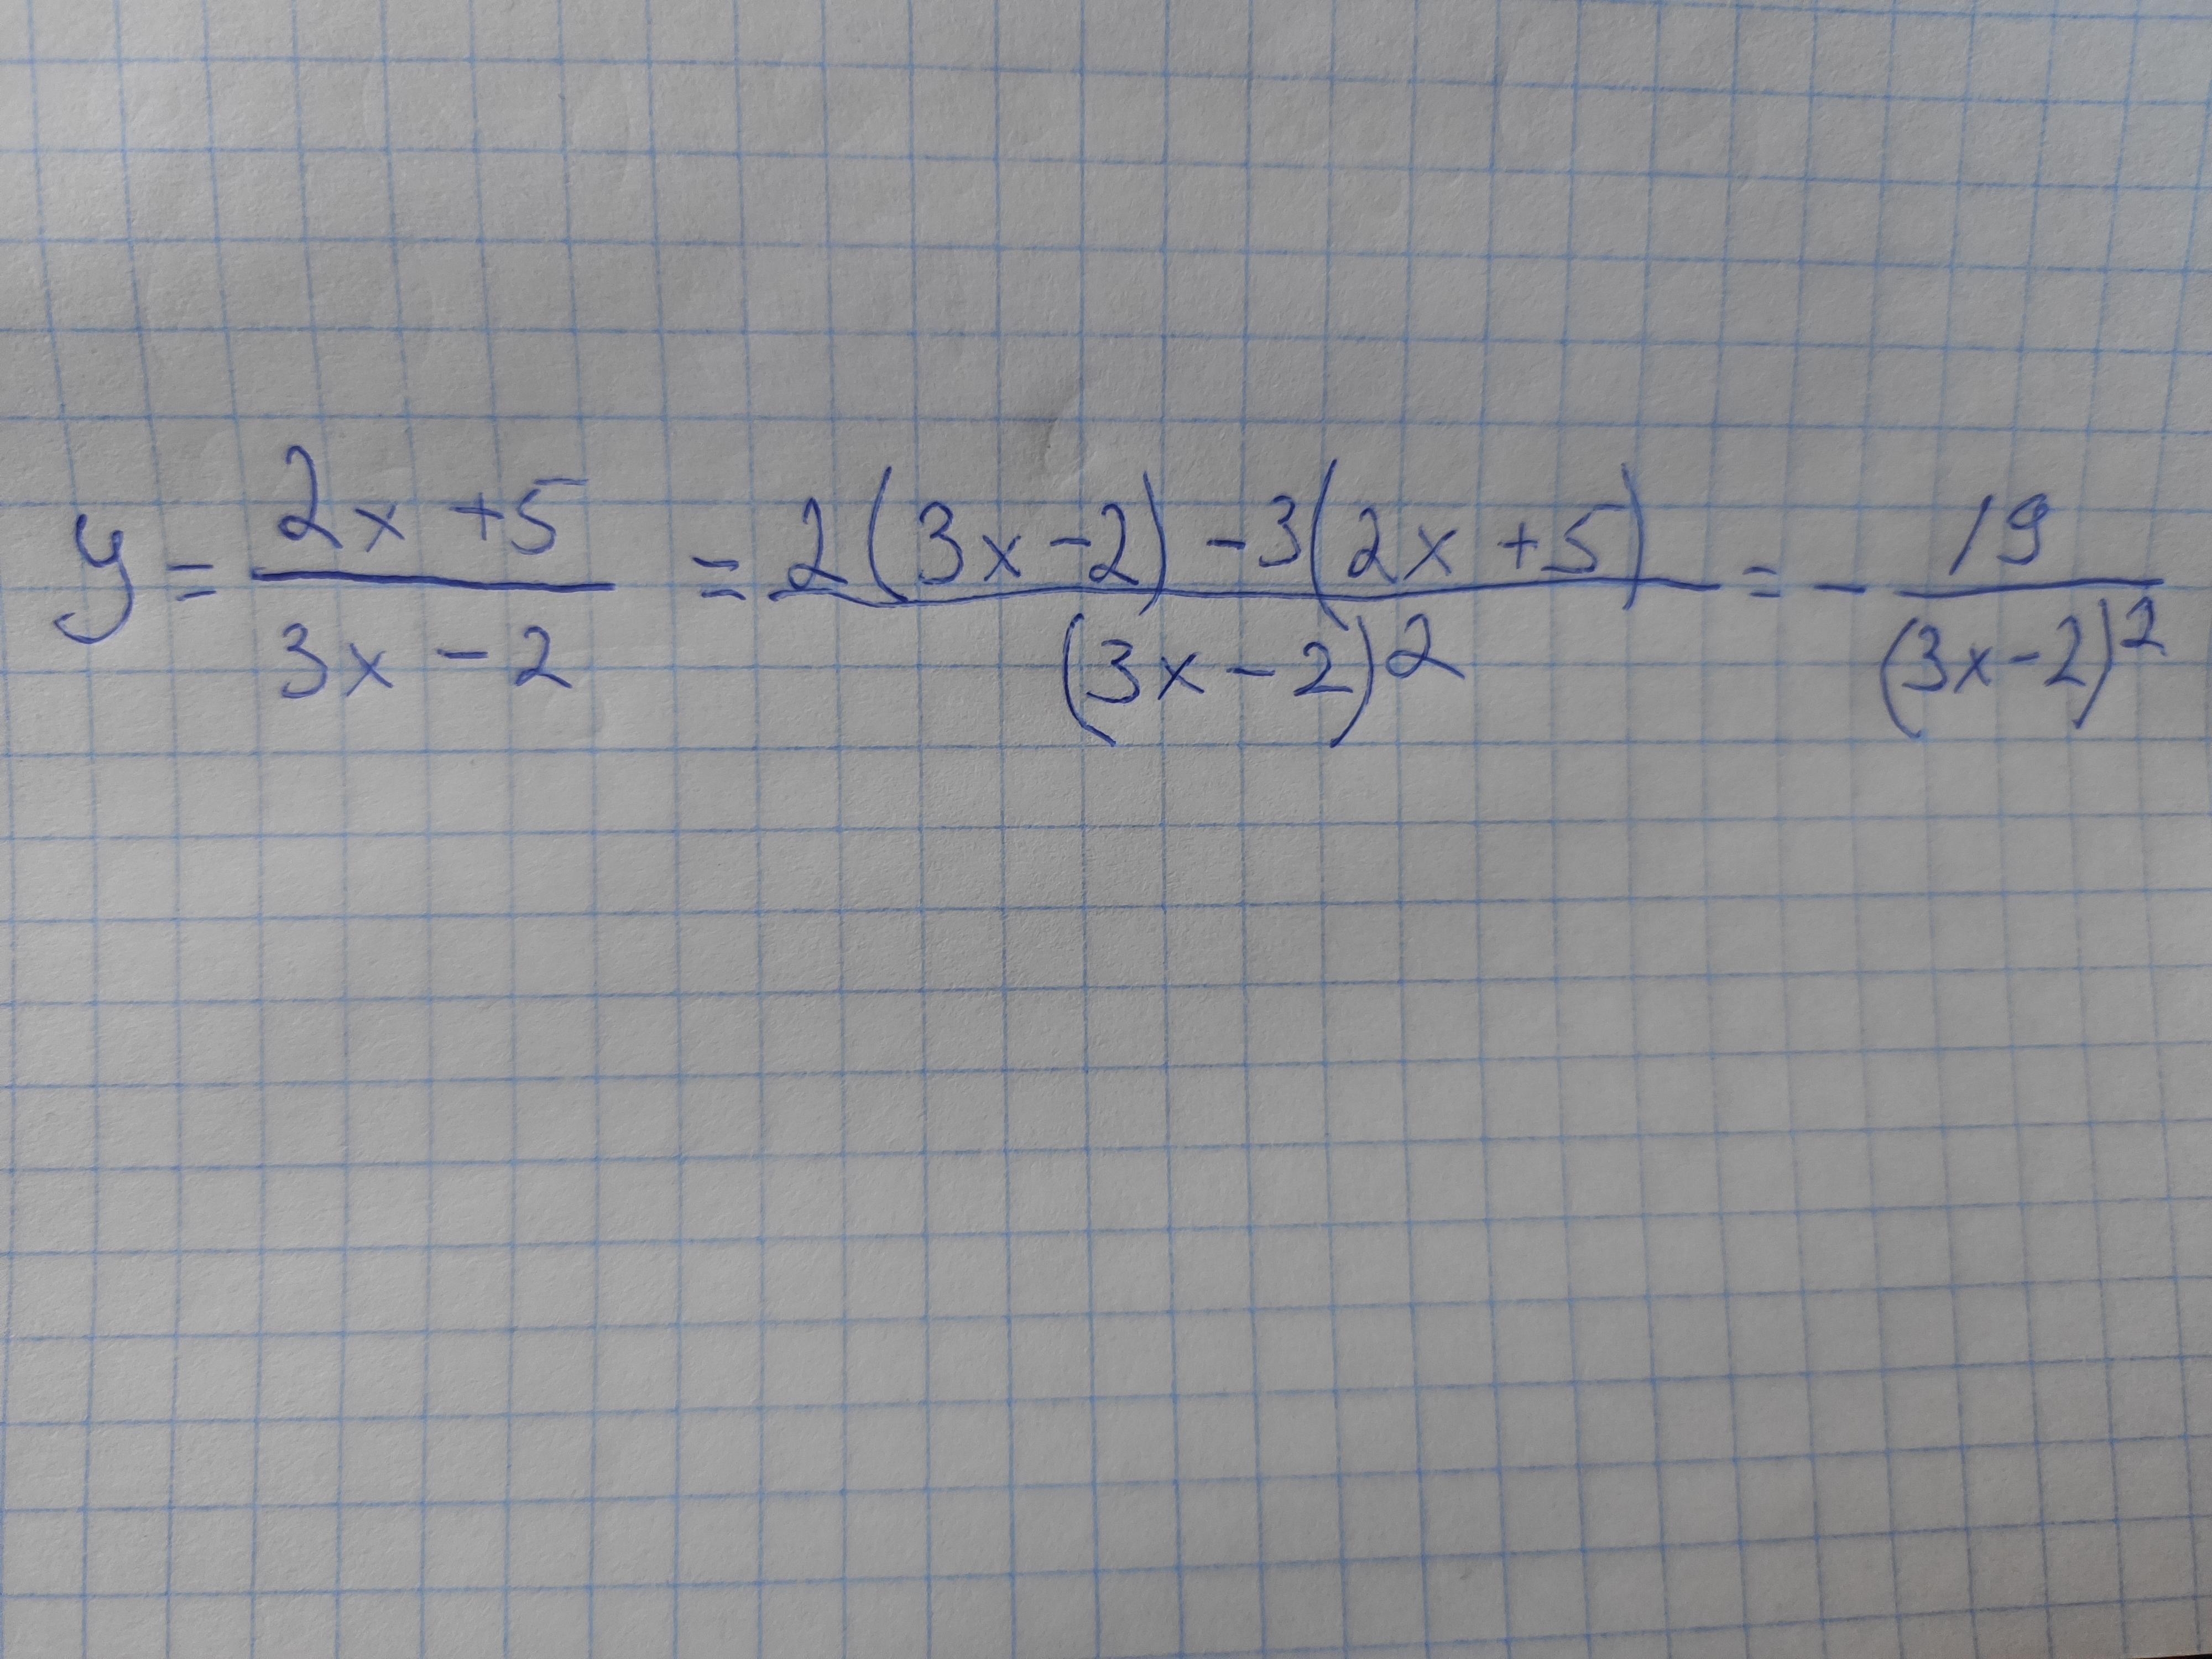 y = (2x + 5)/(3x - 2) = (2(3x - 2) - 3(2x + 5))/(3x - 2)^2 = - 19/(3x - 2)^2